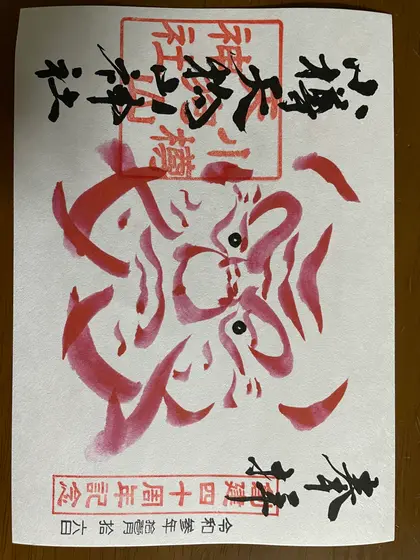 奉拝
令和参年拾壱月拾六日
創建四十周年記念
小樽天狗山神社
小樽
天狗山
神社